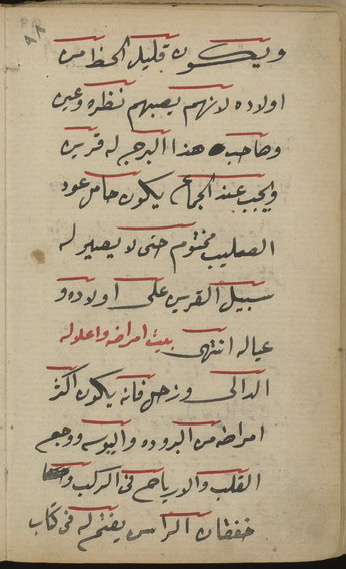 ٩٨
ويكون قليل الحظ من
اولاده لانهم يصبهم نظره وعين
وصاحب هذا البرج له قرين
ويجب عند الجماع يكون حامل عود
الصليب مختوم حتى لا يصير له
سبيل القرين على اولاده و
عياله انتهى بيت امراضه واعلوله
الدالى وزحل فانه يكون اكثر
امراضه من البروده واليبوسه ووجع
القلب والارياح فى الركب و
خفقان الراس يفتح له فى كتاب